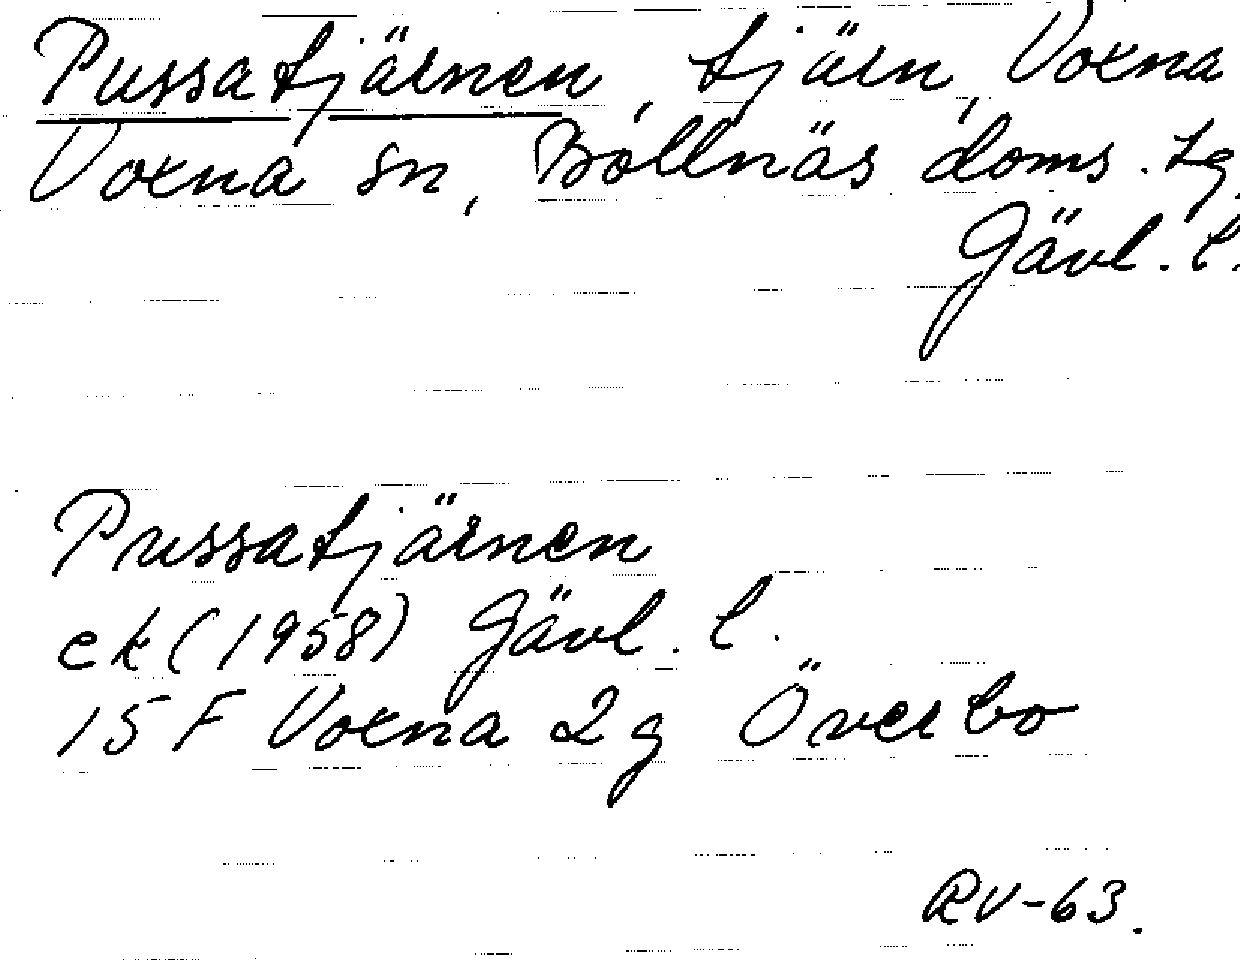 Pussatjärnen, tjärn, Voxna
Voxna sn, Bollnäs doms. tg,
Gävl. l.
Pussatjärnen
ek (1958) Gävl. l.
15 F Voxna 2g Överbo
RV-63.